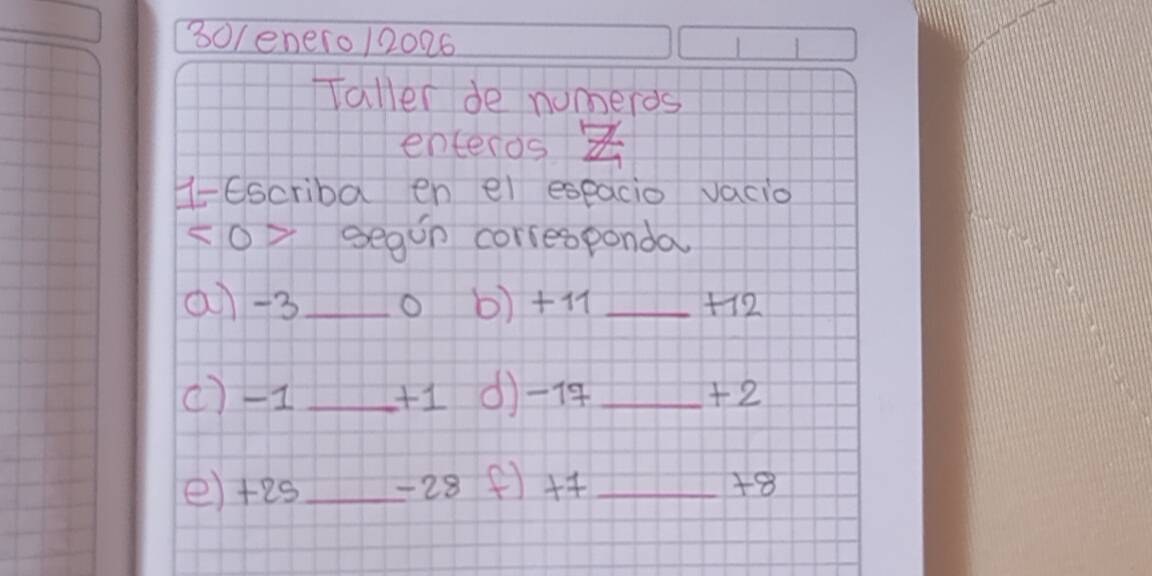 30/enero/2026
Taller de numeros
enteros Z
1-Escriba en el espacio vacio
<o> según corresponda
a) -3 ____ 0 b) +11 ____ +12
c) -1 ____ +1 d) -17 ____ +2
e) +25 ____ -28 f) +7 ____ +8